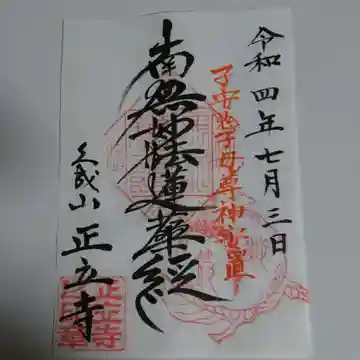 令和四年七月三日
子安鬼子母尊神安置
南無妙法蓮華経
久成山 正立寺